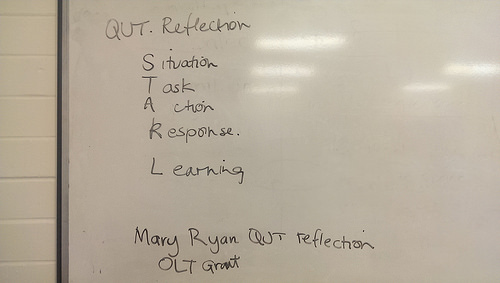 QUT. Reflection
Situation
Task
Action
Response.
Learning
Mary Ryan QUT reflection
OLT Grant